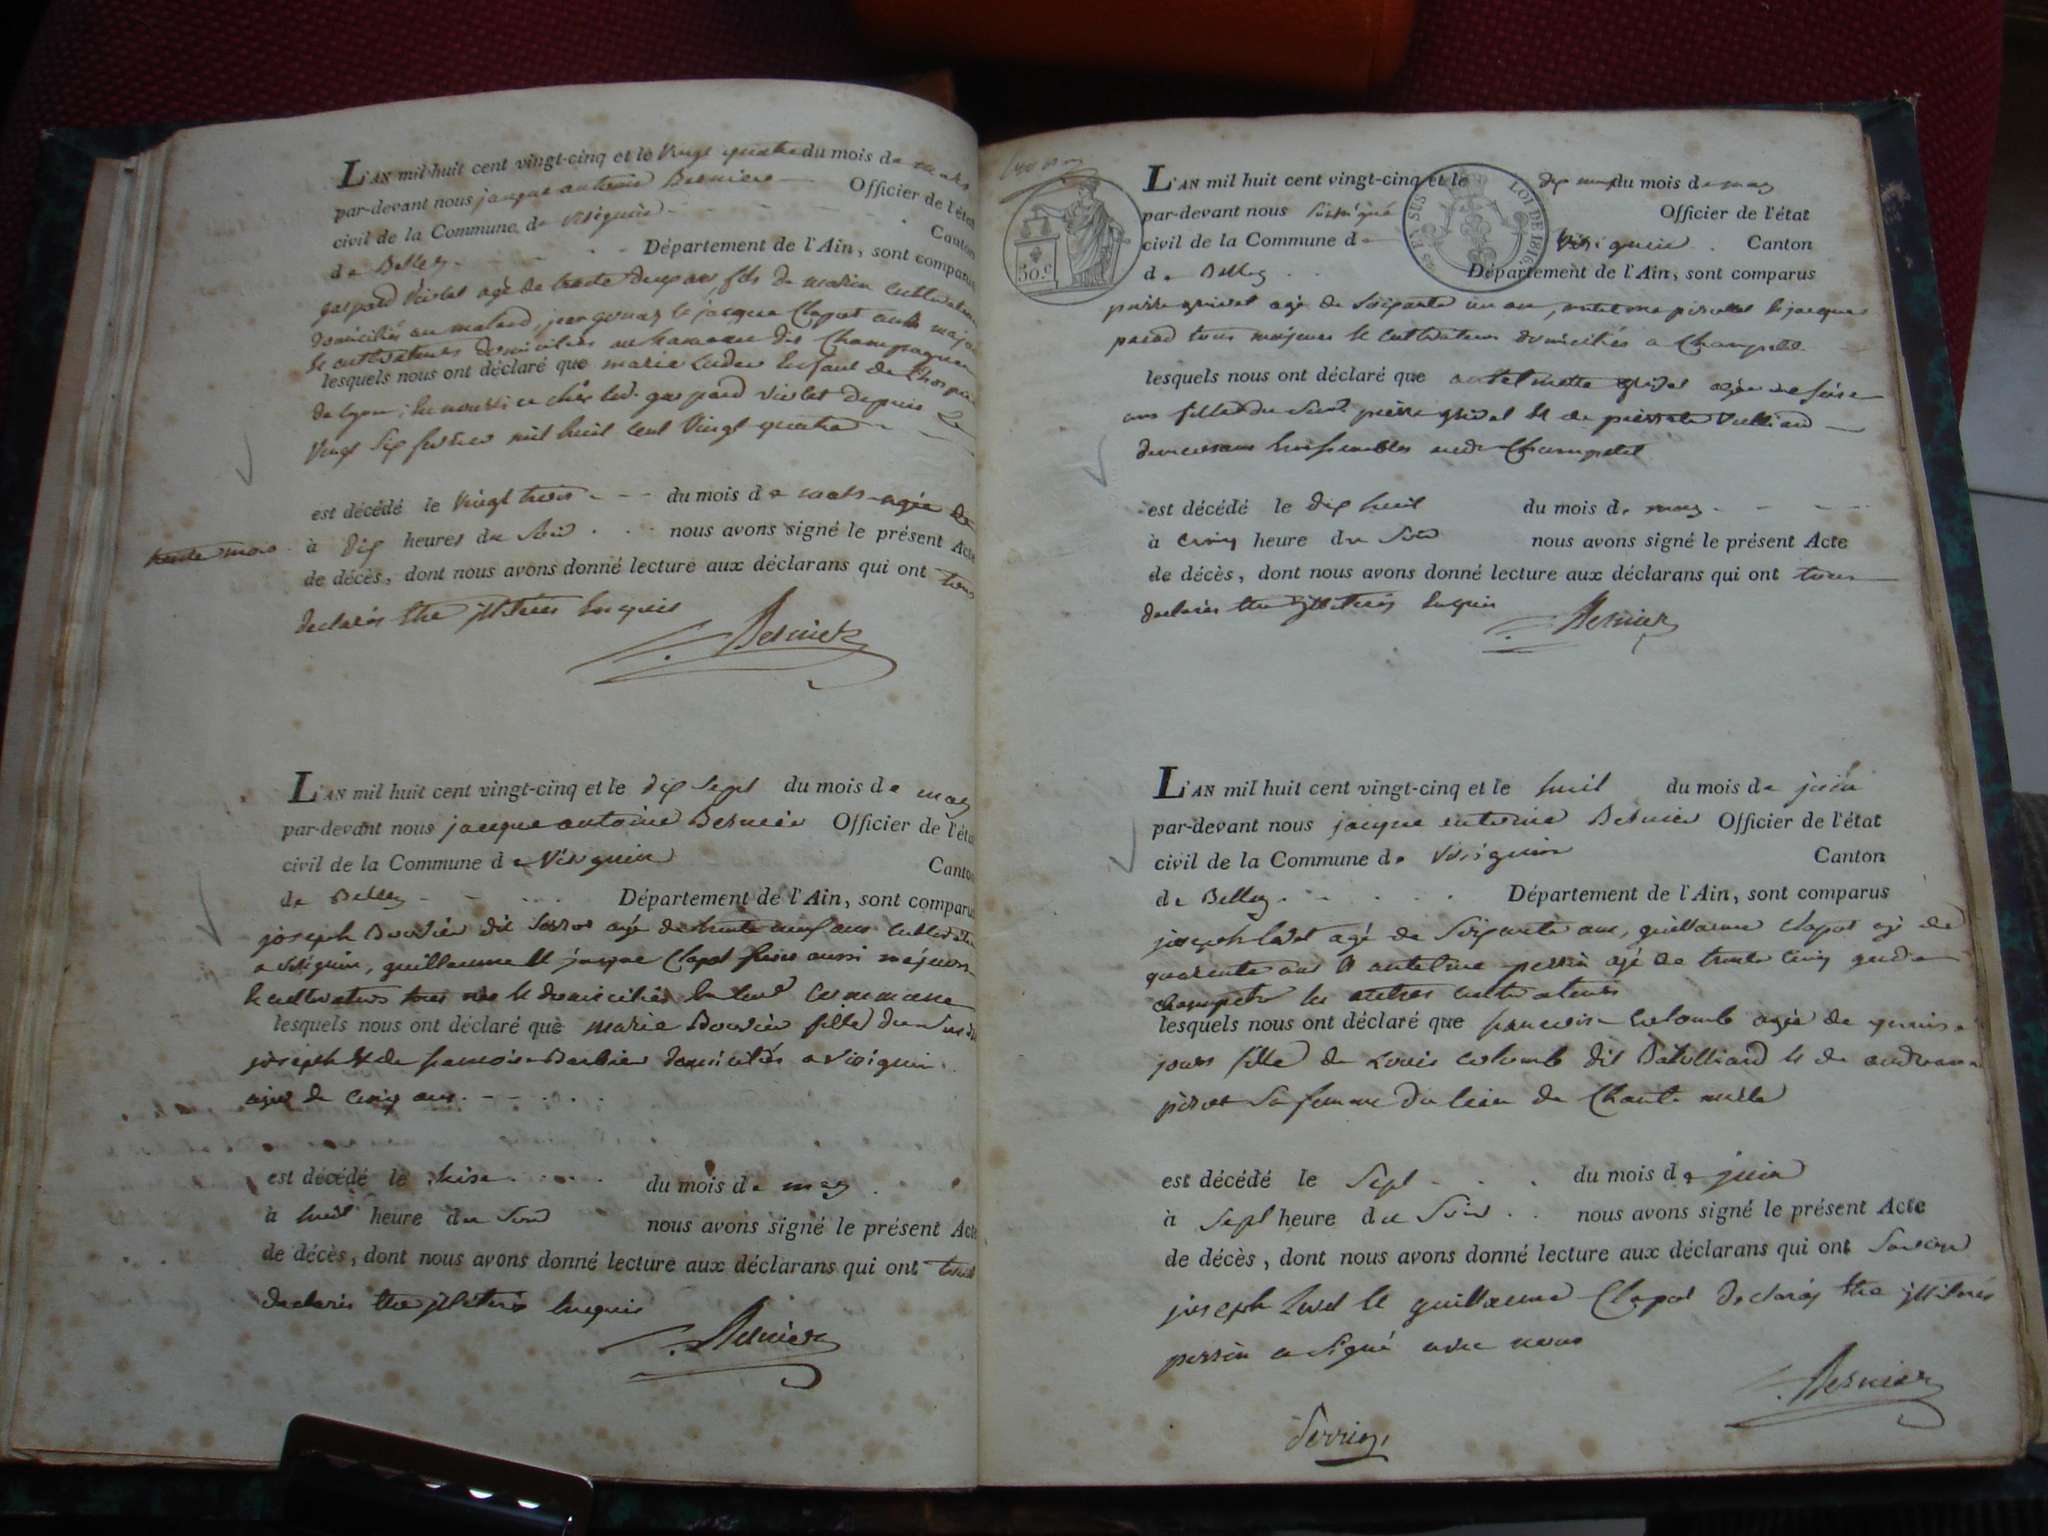 L'AN mil huit cent vingt-cinq et le vingt quatre du mois de mars
par-devant nous jacque antoine Bernier Officier de l'état
civil de la Commune de Virignin Canton
de Belley Département de l'Ain, sont comparus
gaspard Violet agé de trente deux ans, fils de cultivateur
domiciliés au jean et jacque Clapot aussi majeurs
et cultivateurs domiciliés au hameau des
lesquels nous ont déclaré que marie Enfant de
de lyon, En nourrice chés led. gaspard Violet depuis le
vingt Six fevrier mil huit cent vingt quatre
est décédé le vingt trois du mois de mars agée de
trente mois
à dix heures du Soir nous avons signé le présent Acte
de décès, dont nous avons donné lecture aux déclarans qui ont tous
declarés etre illiterés Enquis
Bernier
L'AN mil huit cent vingt-cinq et le dix Sept du mois de may
par-devant nous jacque antoine Bernier Officier de l'état
civil de la Commune de Virignin Canton
de Belley Département de l'Ain, sont comparus
joseph Bouvier dit agé de trente neuf ans cultivateur
a Virignin, guillaume et jacque Clapot freres aussi majeurs
et cultivateurs tous et domiciliés En lad. commune
lesquels nous ont déclaré que marie Bouvier fille dud.
joseph et de françoise Barbier domiciliés a Virignin
agée de cinq ans.
est décédé le seise du mois de may
à huit heure du Soir nous avons signé le présent Acte
de décès, dont nous avons donné lecture aux déclarans qui ont tous
declarés etre illiterés Enquis
Bernier
30.c
EN SUS LOI DE 1816.
L'AN mil huit cent vingt-cinq et le dix neuf du mois de may
par-devant nous Soussigné Officier de l'état
civil de la Commune de Virignin Canton
de Belley Département de l'Ain, sont comparus
pierre grivet agé de Soixante un an, et jacques
tous majeurs et cultivateurs domiciliés a Champtel
lesquels nous ont déclaré que antelmette grivet agée de seise
ans fille du Susd. pierre grivet et de pierrette
demeurans Ensembles aud. Champtel
est décédé le dix huit du mois de may
à cinq heure du Soir nous avons signé le présent Acte
de décès, dont nous avons donné lecture aux déclarans qui ont tous
declarés etre illiterés Enquis
Bernier
L'AN mil huit cent vingt-cinq et le huit du mois de juin
par-devant nous jacque antoine Bernier Officier de l'état
civil de la Commune de Virignin Canton
de Belley Département de l'Ain, sont comparus
joseph agé de Soixante ans, guillaume Clapot agé de
quarente ans et antelme perrin agé de trente cinq
les autres cultivateurs
lesquels nous ont déclaré que françoise colomb agée de quinse
jours fille de Louis colomb dit et de
Sa femme du lieu de Chantemerle
est décédé le Sept du mois de juin
à Sept heure du Soir nous avons signé le présent Acte
de décès, dont nous avons donné lecture aux déclarans qui ont
joseph et guillaume Clapot declarés etre illiterés
perrin a Signé avec nous
Bernier
Perrin